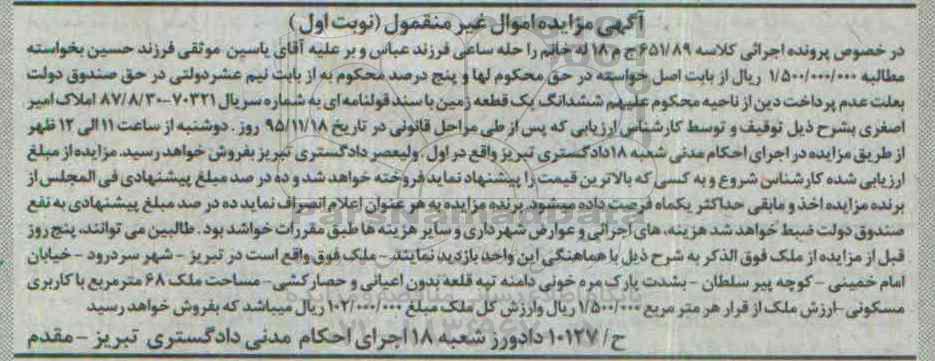 آگهی مزایده اموال غیر منقمول (نوبت اول)
در خصوص پرونده اجرائی کلاسه ۶۵۱/۸۹ ج م ۱۸ له خانم راحله ساعی فرزند عباس و بر علیه آقای یاسین موثقی فرزند حسین بخواسته
مطالبه ۱/۵۰۰/۰۰۰/۰۰۰ ریال از بابت اصل خواسته در حق محکوم لها و پنج درصد محکوم به از بابت نیم عشر دولتی در حق صندوق دولت
بعلت عدم پرداخت دین از ناحیه محکوم علیهم ششدانگ یک قطعه زمین با سند قولنامه ای به شماره سریال ۷۰۳۲۱-۸۷/۸/۳۰ املاک امیر
اصغری بشرح ذیل توقیف و توسط کارشناس ارزیابی که پس از طی مراحل قانونی در تاریخ ۹۵/۱۱/۱۸ روز . دوشنبه از ساعت ۱۱ الی ۱۲ ظهر
از طریق مزایده در اجرای احکام مدنی شعبه ۱۸ دادگستری تبریز واقع در اول . ولیعصر دادگستری تبریز بفروش خواهد رسید. مزایده از مبلغ
ارزیابی شده کارشناس شروع و به کسی که بالاترین قیمت را پیشنهاد نماید فروخته خواهد شد و ده در صد مبلغ پیشنهادی فی المجلس از
برنده مزایده اخذ و مابقی حداکثر یکماه فرصت داده میشود. برنده مزایده به هر عنوان اعلام انصراف نماید ده در صد مبلغ پیشنهادی به نفع
صندوق دولت ضبط خواهد شد هزینه، های اجرائی و عوارض شهرداری و سایر هزینه ها طبق مقررات خواشد بود . طالبین می توانند، پنج روز
قبل از مزایده از ملک فوق الذکر به شرح ذیل با هماهنگی این واحد بازدید نمایند - ملک فوق واقع است در تبریز - شهر سردرود - خیابان
امام خمینی - کوچه پیر سلطان - بشدت پارک مره خونی دامنه تپه قلعه بدون اعیانی و حصارکشی - مساحت ملک ۶۸ مترمربع با کاربری
مسکونی - ارزش ملک از قرار هر متر مربع ۱/۵۰۰/۰۰۰ ریال وارزش کل ملک مبلغ ۱۰۲/۰۰۰/۰۰۰ ریال میباشد که بفروش خواهد رسید
ح/ ۱۰۱۲۷ دادورز شعبه ۱۸ اجرای احکام مدنی دادگستری تبریز - مقدم